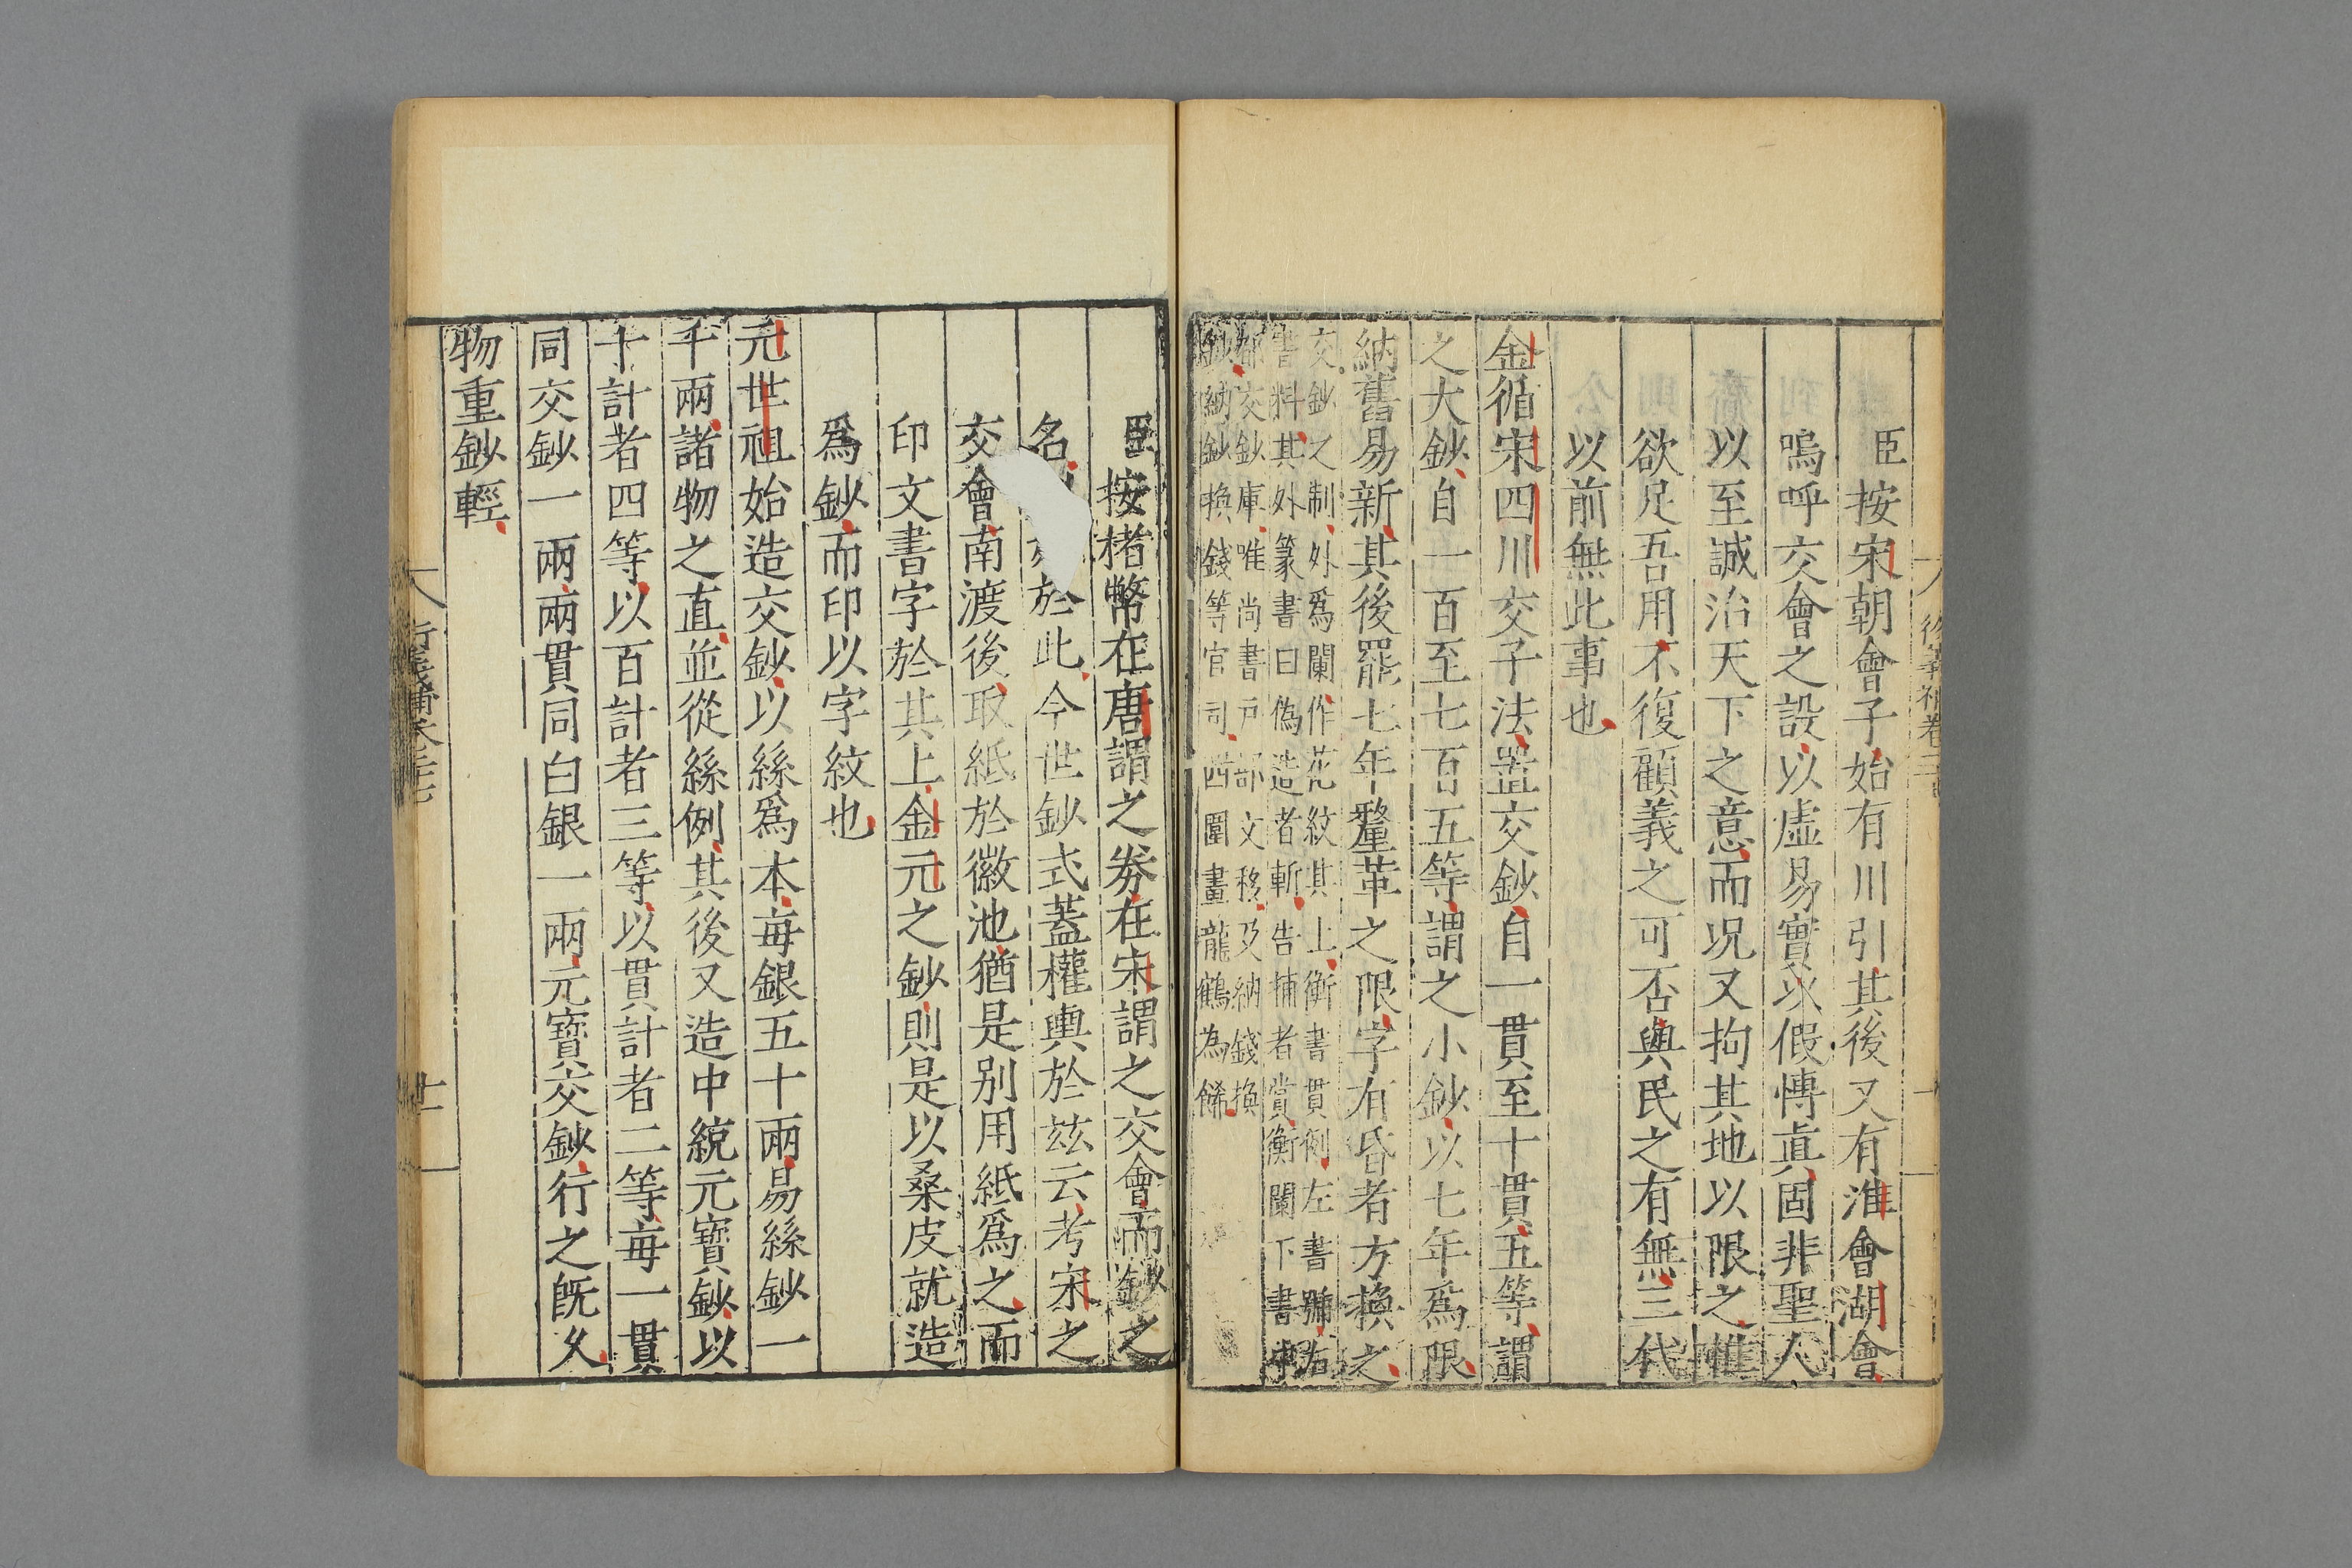 臣按宋朝會子始有川引其後又有淮會湖會
嗚呼交會之設以虛易實以假博真固非聖人
以至誠治天下之意而况又拘其地以限之惟
欲足吾用不復顧義之可否與民之有無三代
以前無此事也
金循宋四川交子法置交鈔自一貫至十貫五等謂
之大鈔自一百至七百五等謂之小鈔以七年爲限
納舊易新其後罷七年釐革之限字有昏者方換之
交鈔之制外爲闌作花紋其上衡書貫例左書號右
書料其外篆書曰偽造者斬告捕者賞衡闌下書中
都交鈔庫唯尚書戶部文移及納錢換
鈔納鈔換錢等官司四圍畫龍鶴為餙
臣按楮幣在唐謂之券在宋謂之交會而鈔之
名於此今世鈔式蓋權輿於玆云考宋之
交會南渡後取紙於徽池猶是别用紙爲之而
印文書字於其上金元之鈔則是以桑皮就造
爲鈔而印以字紋也
元世祖始造交鈔以絲爲本每銀五十兩易絲鈔一
千兩諸物之直並從絲例其後又造中統元寶鈔以
十計者四等以百計者三等以貫計者二等每一貫
同交鈔一兩兩貫同白銀一兩元寶交鈔行之旣久
物重鈔輕